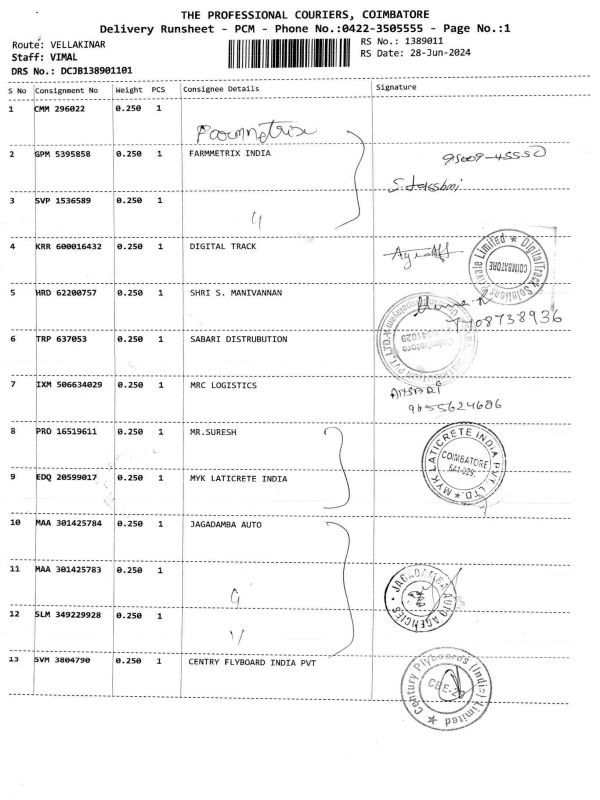 THE PROFESSIONAL COURIERS, COIMBATORE
Delivery Runsheet - PCM - Phone No.:0422-3505555 - Page No.:1
Route: VELLAKINAR
RS No.: 1389011
Staff: VIMAL
RS Date: 28-Jun-2024
DRS No.: DCJB138901101
S No Consignment No Weight PCS Consignee Details Signature
1 CMM 296022 0.250 1
2 GPM 5395858 0.250 1 FARMMETRIX INDIA
95009-45550
3 SVP 1536589 0.250 1
4 KRR 600016432 0.250 1 DIGITAL TRACK
DigitalTrack Solutions Private Limited ★
COIMBATORE
5 HRD 62200757 0.250 1 SHRI S. MANIVANNAN
08738936
6 TRP 637053 0.250 1 SABARI DISTRUBUTION
Coimbatore
641029
7 IXM 506634029 0.250 1 MRC LOGISTICS
9655624686
8 PRO 16519611 0.250 1 MR.SURESH
MYK LATICRETE INDIA PVT. LTD. ★
COIMBATORE
641-029.
9 EDQ 20599017 0.250 1 MYK LATICRETE INDIA
10 MAA 301425784 0.250 1 JAGADAMBA AUTO
11 MAA 301425783 0.250 1
JAGADAMBA AUTO AGENCIES
12 SLM 349229928 0.250 1
13 SVM 3804790 0.250 1 CENTRY FLYBOARD INDIA PVT
Century Plyboards (India) Limited ★